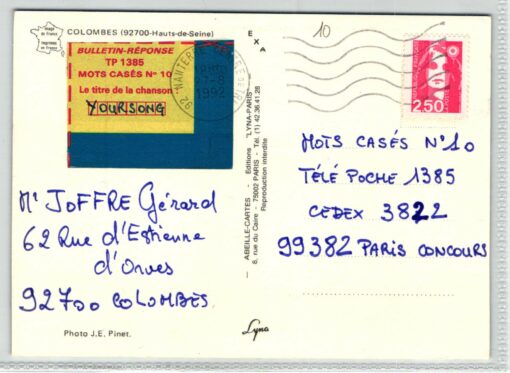 Image
de France
Imprimée
en France
COLOMBES (92700-Hauts-de-Seine)
E X A
10
BULLETIN-RÉPONSE
TP 1385
MOTS CASÉS N° 10
Le titre de la chanson
YOURSONG
92 NANTERRE
1992
2,50
MOTS CASÉS N°10
TÉLÉ POCHE 1385
CEDEX 3822
99382 PARIS CONCOURS
Mr JOFFRE Gérard
62 Rue d'Estienne
d'Orves
92700 COLOMBES
ABEILLE-CARTES - Editions "LYNA-PARIS"
8, rue du Caire - 75002 PARIS - Tél. (1) 42.36.41.28
Reproduction interdite
Photo J.E. Pinet.
Lyna